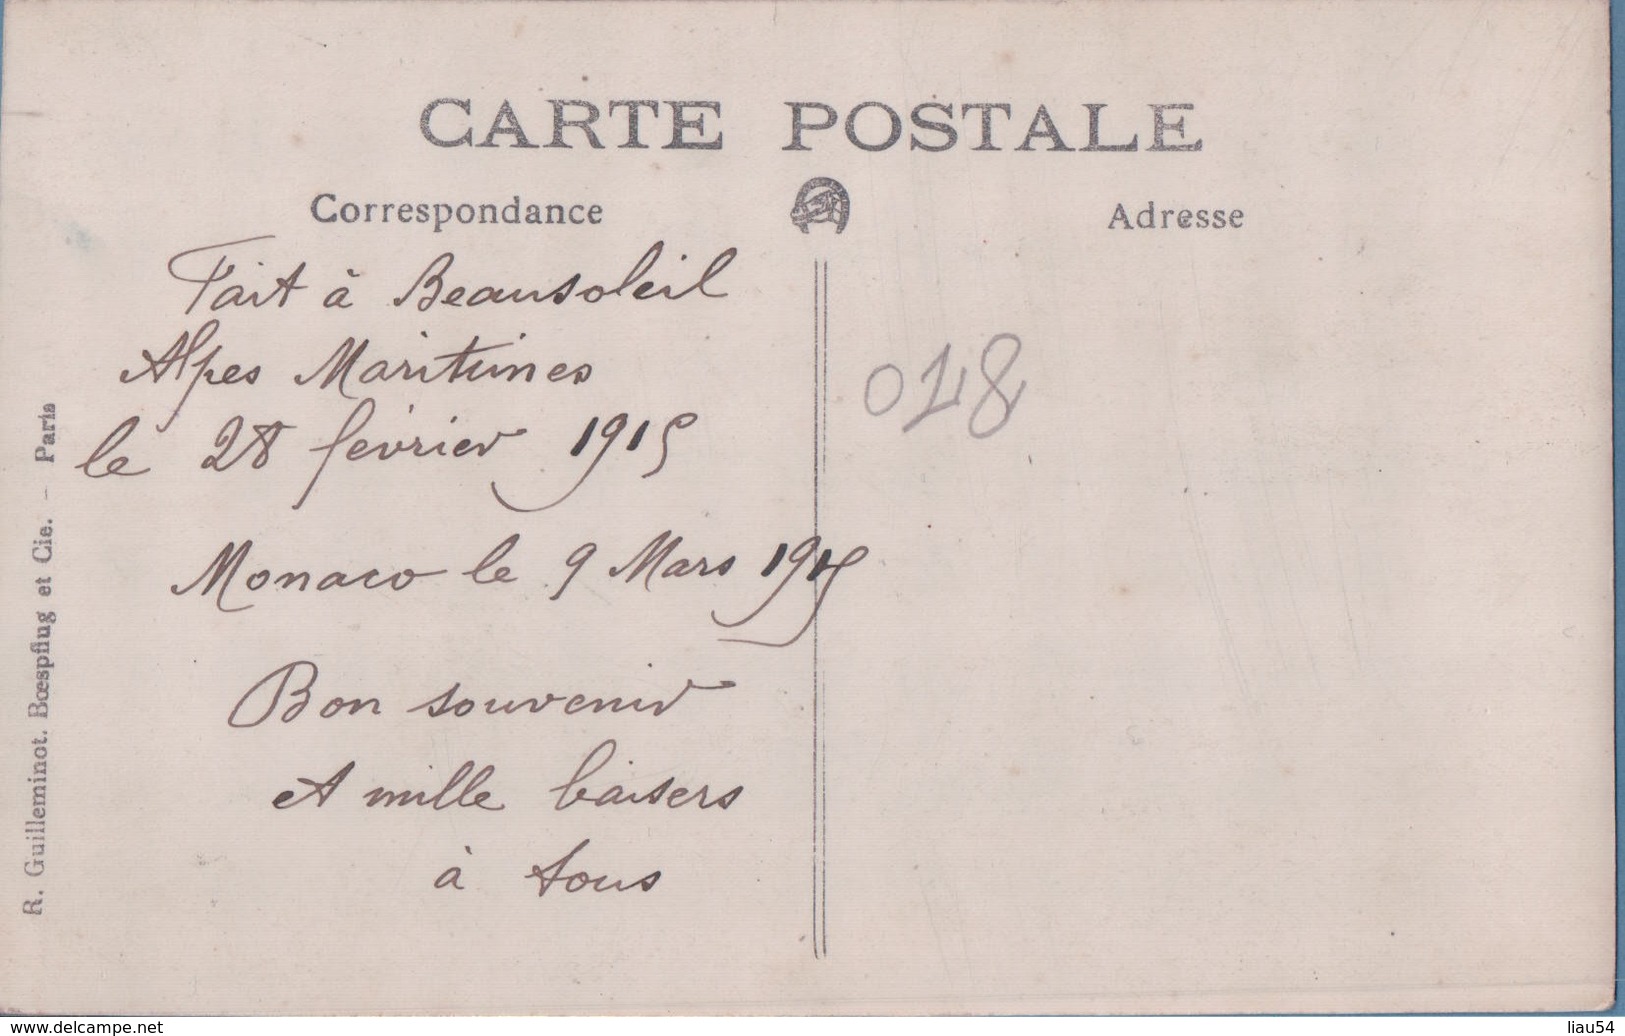 CARTE POSTALE
Correspondance
Adresse
Fait à Beausoleil
Alpes Maritimes
le 28 février 1915
Monaco le 9 Mars 1915
Bon souvenir
et mille baisers
à tous
018
R. Guilleminot. Bœspflug et Cie. - Paris
www.delcampe.net
liau54